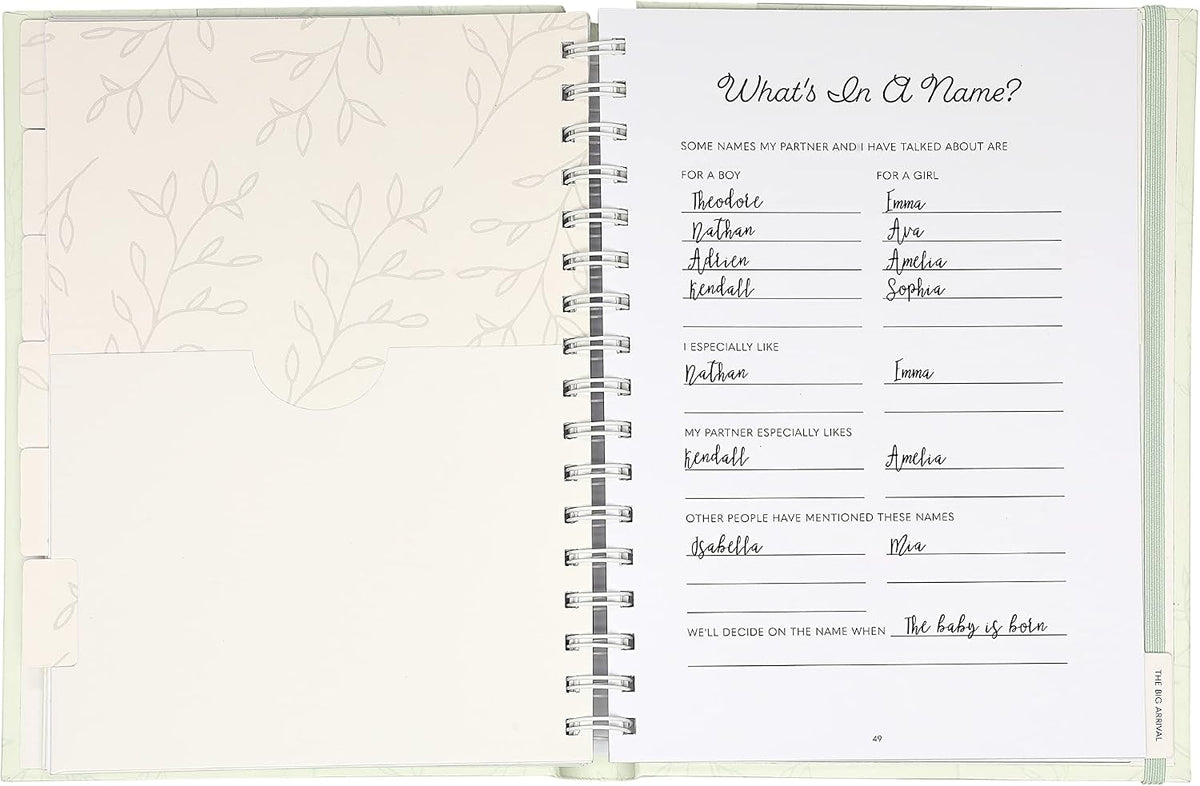 What's In A Name?
SOME NAMES MY PARTNER AND I HAVE TALKED ABOUT ARE
FOR A BOY FOR A GIRL
Theodore Emma
Nathan Ava
Adrien Amelia
Kendall Sophia
I ESPECIALLY LIKE
Nathan Emma
MY PARTNER ESPECIALLY LIKES
Kendall Amelia
OTHER PEOPLE HAVE MENTIONED THESE NAMES
Isabella Mia
WE'LL DECIDE ON THE NAME WHEN The baby is born
THE BIG ARRIVAL
49